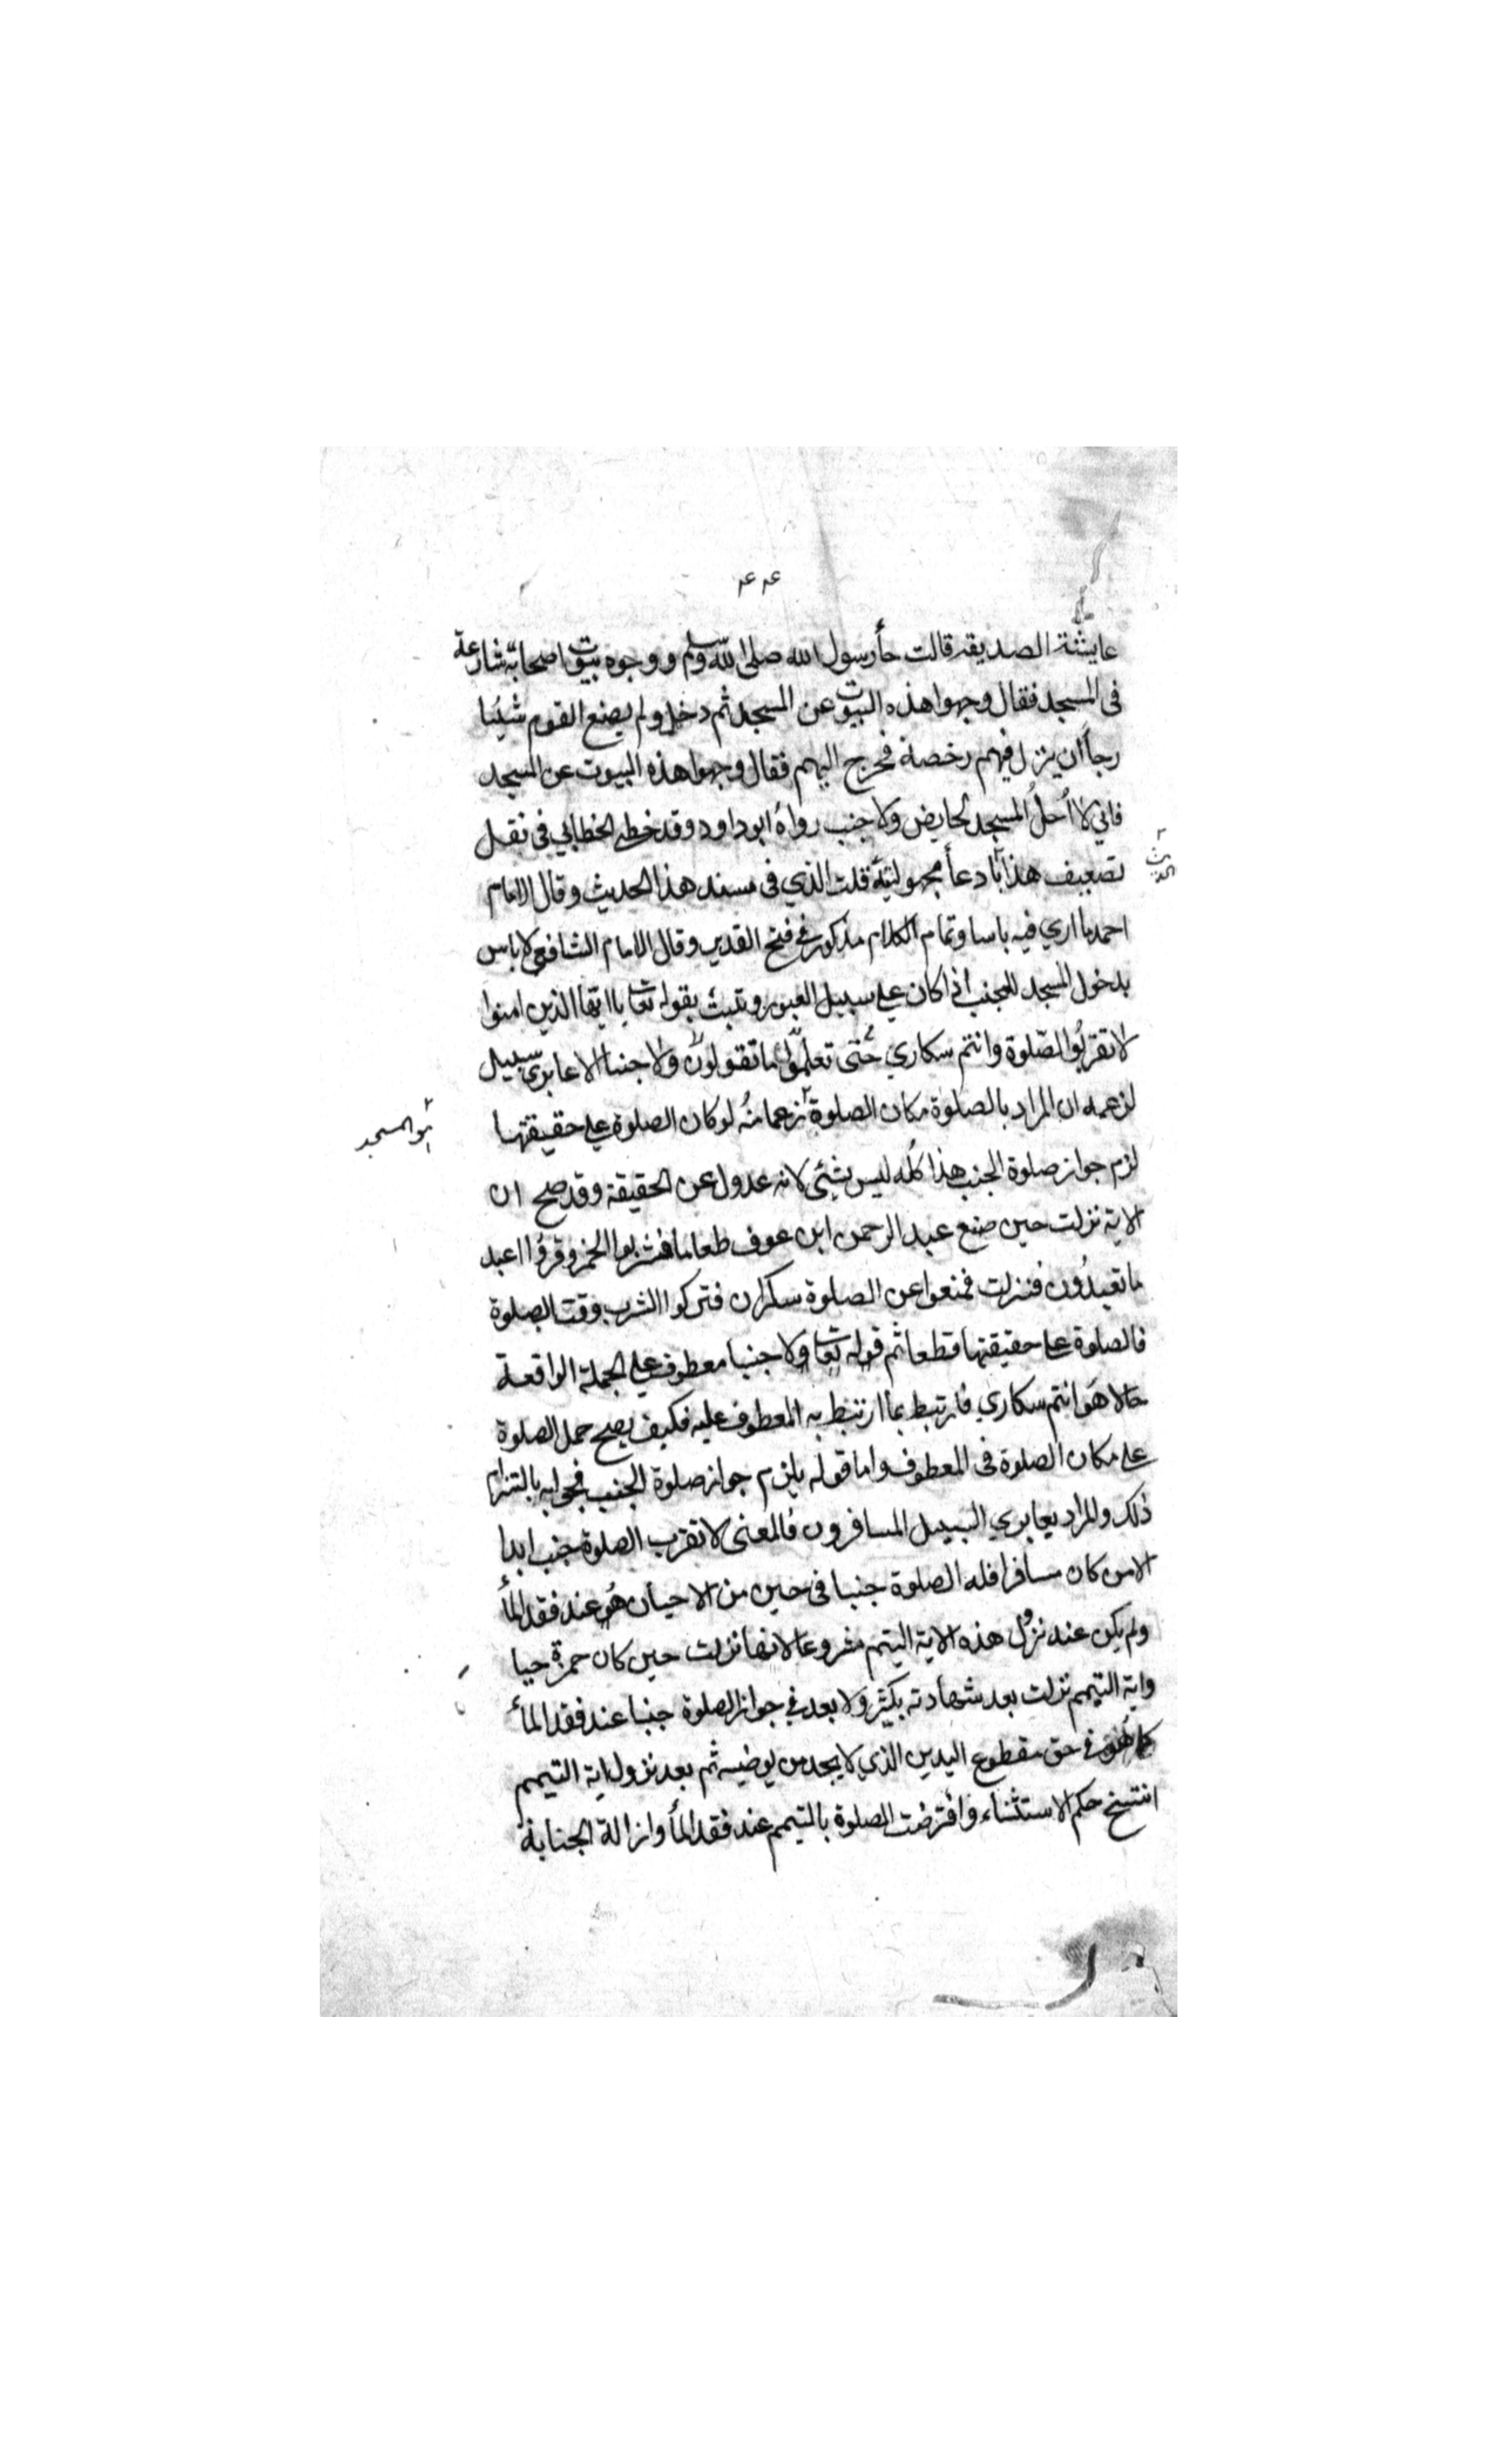 ٤٤
عايشة الصديقه قالت جأ رسول الله صلى الله وسلم ووجوه بيوت اصحابه شارعة
فى المسجد فقال وجهوا هذه البيوت عن المسجد ثم دخل ولم يصنع القوم شيئا
رجاأ ان ينزل فيهم رخصة فخرج اليهم فقال وجهوا هذه البيوت عن المسجد
فاني لا أحل المسجد لحايض ولا جنب رواه ابوداود وقد خطى الخطابي فى نقل
تضعيف هذا بادعأ مجهولية قلت الذي فى مسند هذا الحديث وقال الامام
الحديث
احمد ما اري فيه باسا وتمام الكلام مذكور فى فتح القدير وقال الامام الشافعي لا باس
بدخول المسجد للجنب اذا كان على سبيل العبور وتثبث بقوله تعا يا ايها الذين امنوا
لا تقربوا الصلوة وانتم سكاري حتى تعلموا ما تقولون ولا جنبا الا عابري سبيل
لزعمه ان المراد بالصلوة مكان الصلوة زعما منه لو كان الصلوة على حقيقتها
هو المسجد
لزم جواز صلوة الجنب هذا كله ليس بشئي لانه عدول عن الحقيقة وقد صح ان
الاية نزلت حين صنع عبد الرحمن ابن عوف طعاما فشربوا الخمر وقرؤا اعبد
ما تعبدون فنزلت فمنعوا عن الصلوة سكران فتركوا الشرب وقت الصلوة
فالصلوة على حقيقتها قطعا ثم قوله تعا ولا جنبا معطوف على الجملة الواقعة
حالا هو انتم سكاري فارتبط بما ارتبط به المعطوف عليه فكيف يصح حمل الصلوة
على مكان الصلوة فى المعطوف واما قوله يلزم جواز صلوة الجنب فجوابه بالتزام
ذلك والمراد بعابري السبيل المسافرون فالمعنى لا تقرب الصلوة جنب ابدا
الا من كان مسافرا فله الصلوة جنبا فى حين من الاحيان هو عند فقد المأ
ولم يكن عند نزول هذه الاية التيمم مشروعا لانها نزلت حين كان حمزة حيا
واية التيمم نزلت بعد شهادته بكثير ولا بعد في جواز الصلوة جنبا عند فقد المأ
كما هو في حق مقطوع اليدين الذي لا يجد من يوضيه ثم بعد نزول اية التيمم
انتسخ حكم الاستثناء وافترضت الصلوة بالتيمم عند فقد المأ وازالة الجنابة